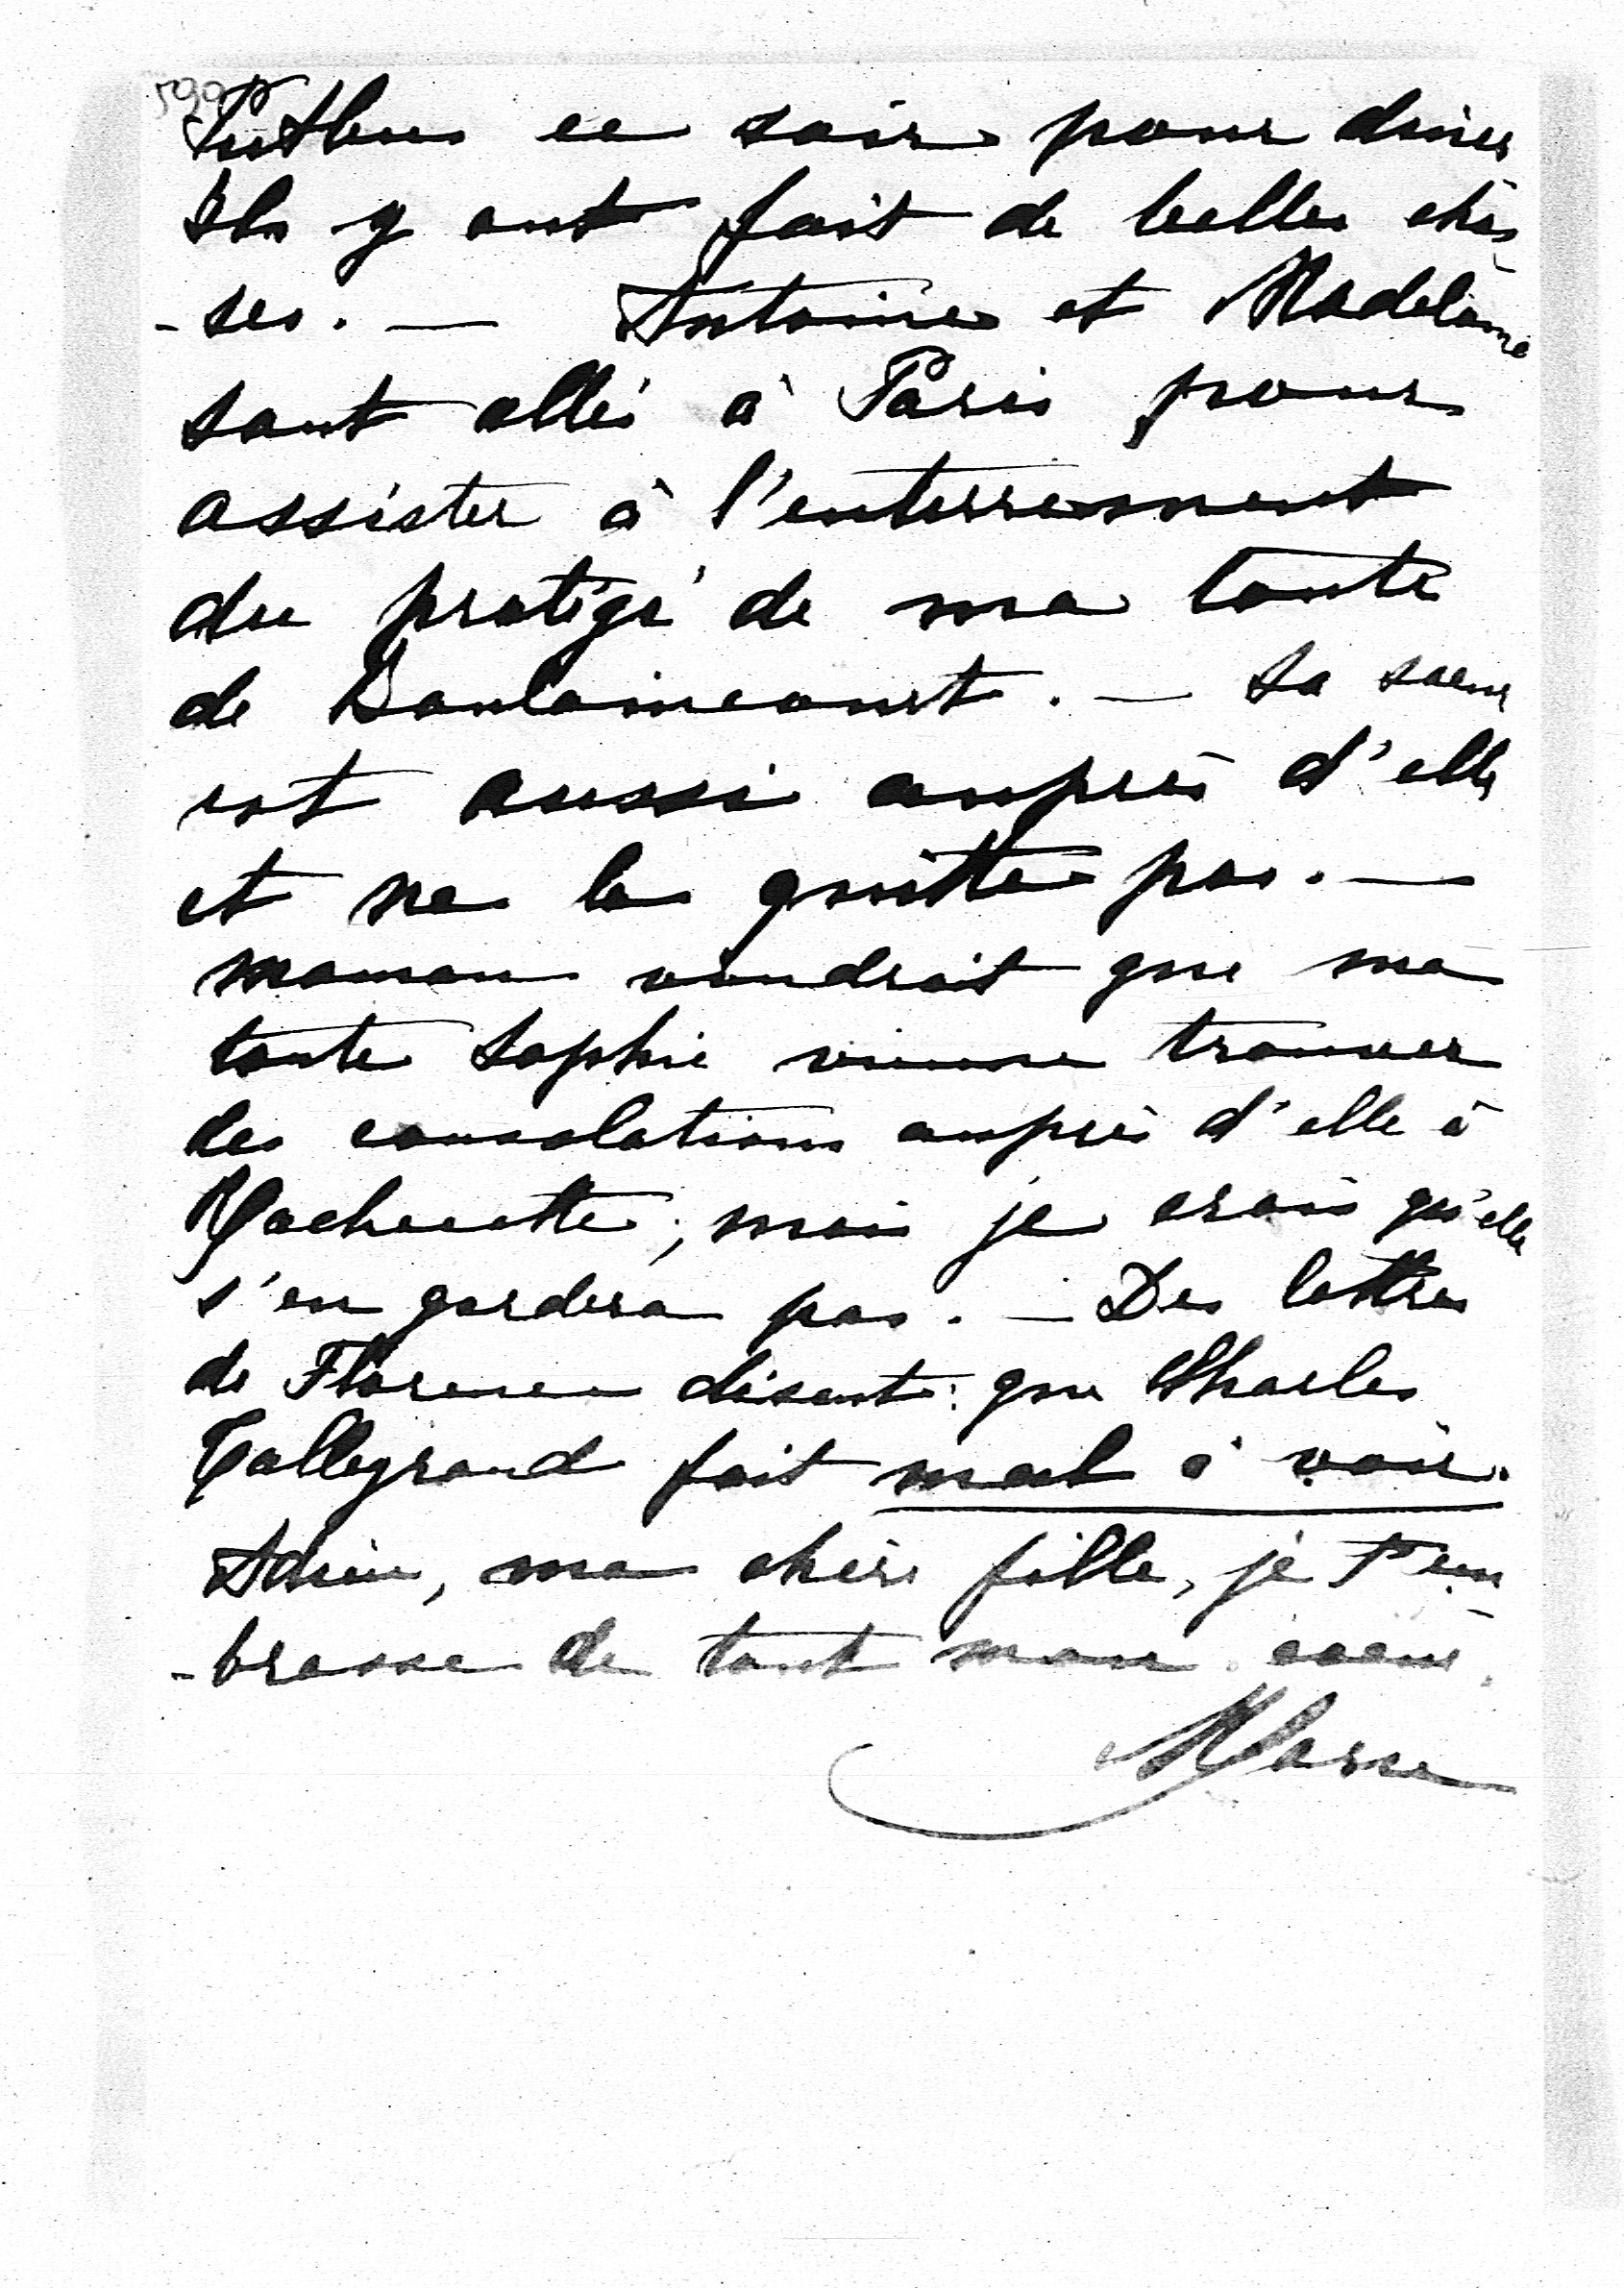 Putbus ce soir pour diner
Ils y ont fait de belles cho-
-ses. — Antoine et Madeleine
sont allés à Paris pour
assister à l'enterrement
du protégé de ma tante
de Doulaincourt. — Sa soeur
est aussi auprès d'elle
et ne la quitte pas. —
maman voudrait que ma
tante Sophie vienne trouver
des consolations auprès d'elle à
Rochecotte; mais je crois qu'elle
s'en gardera pas. — Des lettres
de Florence disent que Charles
Talleyrand fait mal à voir.
Adieu, ma chère fille, je t'em-
-brasse de tout mon coeur.